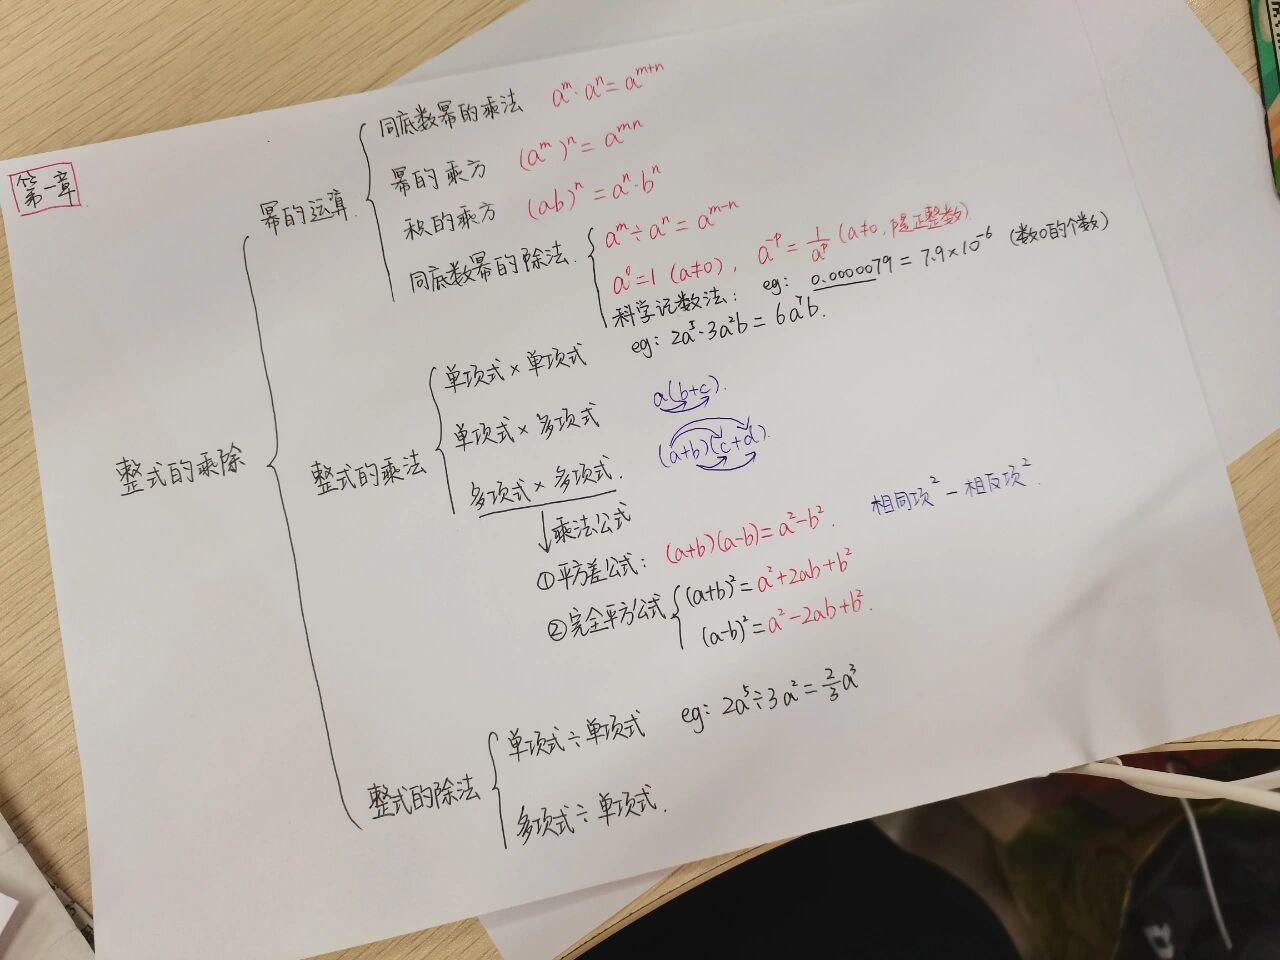 第一章
整式的乘除
幂的运算
同底数幂的乘法 aᵐ·aⁿ=aᵐ⁺ⁿ
幂的乘方 (aᵐ)ⁿ=aᵐⁿ
积的乘方 (ab)ⁿ=aⁿ·bⁿ
同底数幂的除法. aᵐ÷aⁿ=aᵐ⁻ⁿ
a⁰=1 (a≠0), a⁻ᵖ=1/aᵖ (a≠0, 正整数)
科学记数法: eg: 0.0000079=7.9×10⁻⁶ (数0的个数)
整式的乘法
单项式×单项式 eg: 2a⁵·3a²b=6a⁷b.
单项式×多项式 a(b+c).
多项式×多项式. (a+b)(c+d).
乘法公式
①平方差公式: (a+b)(a-b)=a²-b². 相同项²-相反项².
②完全平方公式 (a+b)²=a²+2ab+b²
(a-b)²=a²-2ab+b².
整式的除法
单项式÷单项式 eg: 2a⁵÷3a²=2/3a³
多项式÷单项式.